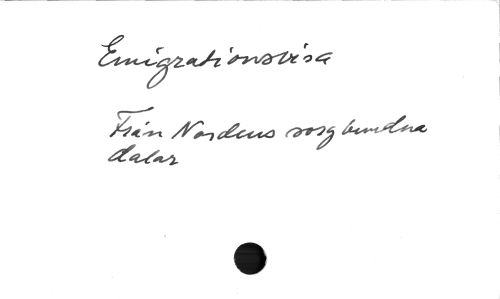 Emigrationsvisa
Från Nordens sorgbundna
dalar